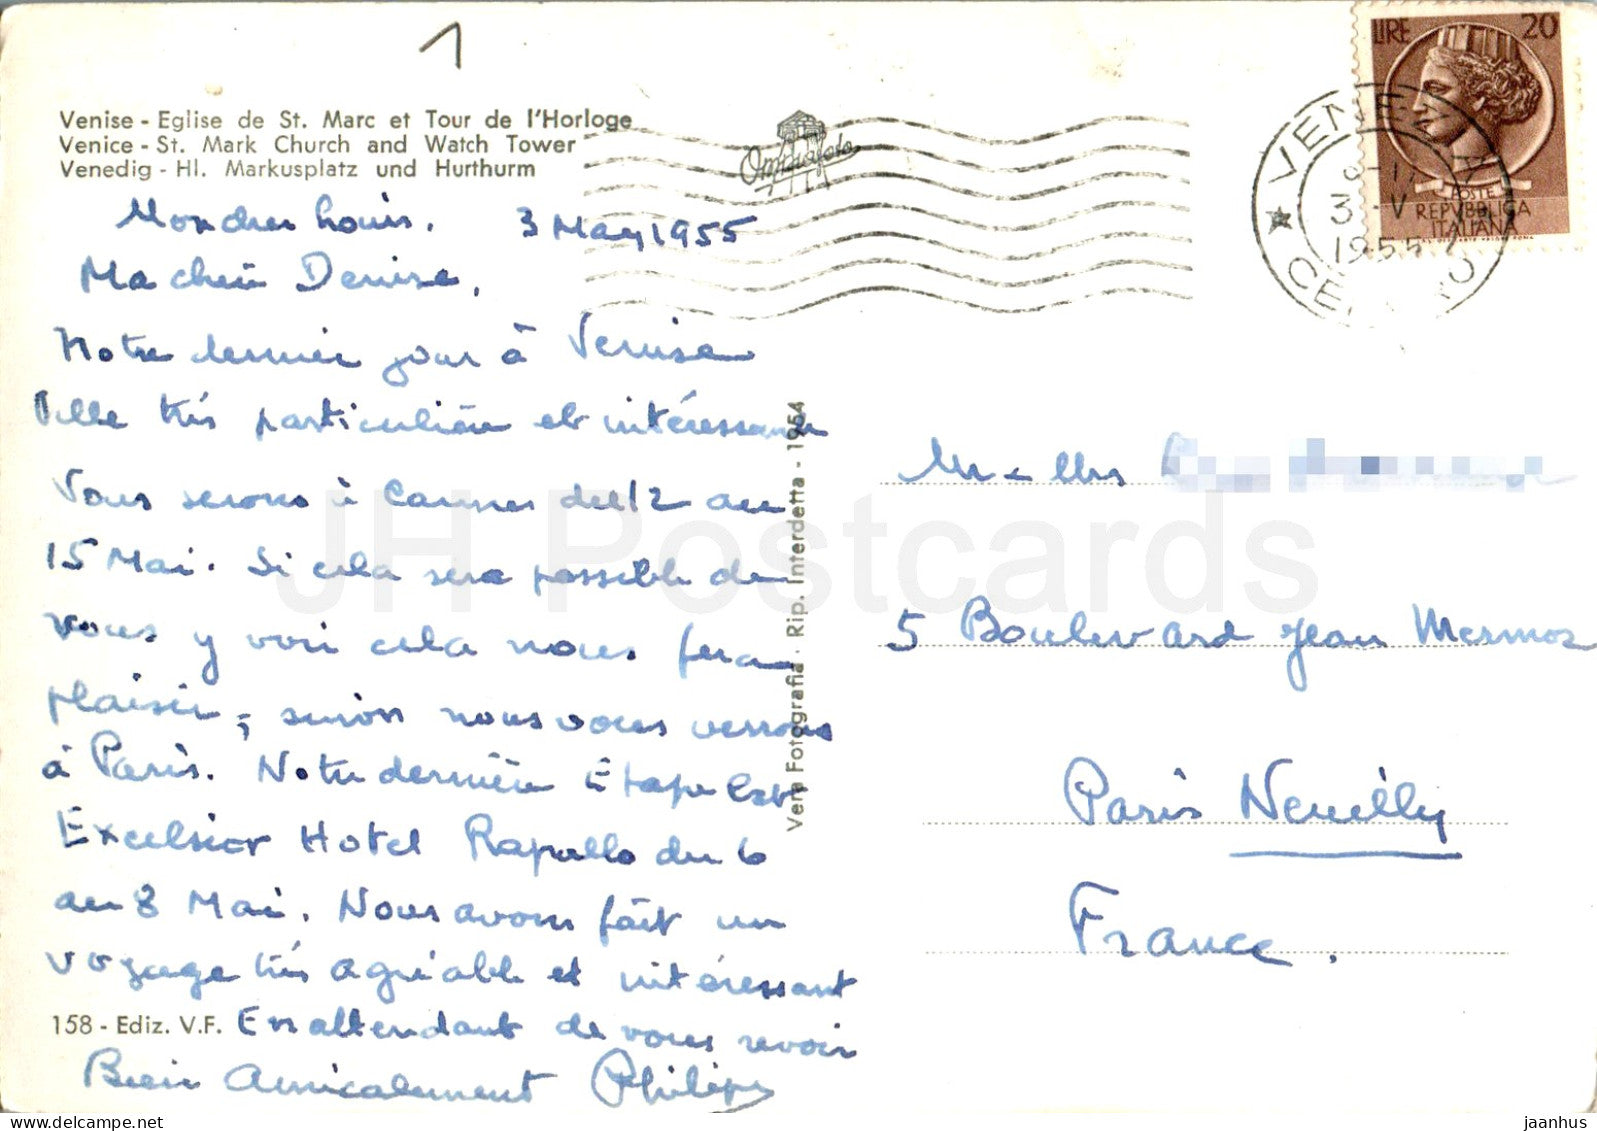 1
Venise - Eglise de St. Marc et Tour de l'Horloge
Venice - St. Mark Church and Watch Tower
Venedig - Hl. Markusplatz und Hurthurm
Omniafoto
LIRE 20
POSTE
REPVBBLICA
ITALIANA
VENEZIA
3 - V
1955
CENTRO
Mon cher Louis. 3 May 1955
Ma chère Denise,
Notre dernier jour à Venise
Ville très particulière et intéressante
Vous serons à Cannes du 12 au
15 Mai. Si cela sera possible de
vous y voir cela nous fera
plaisir, sinon nous vous verrons
à Paris. Notre dernière Etape est
Excelsior Hotel Rapallo du 6
au 8 Mai. Nous avons fait un
voyage très agréable et intéressant
158 - Ediz. V.F. En attendant de vous revoir
Bien Amicalement Philippe
Vera Fotografia - Rip. Interdetta - 1954
5 Boulevard Jean Mermoz
Paris Neuilly
France.
JH Postcards
jaanhus © HipPostcard.com